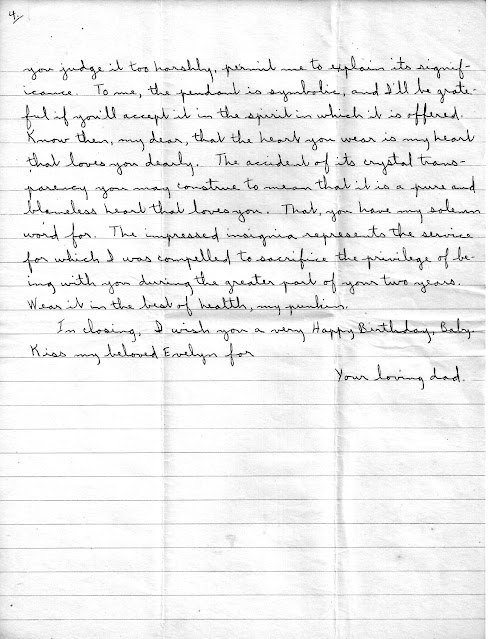 4.
you judge it too harshly, permit me to explain its signif-
icance. To me, the pendant is symbolic, and I'll be grate-
ful if you'll accept it in the spirit in which it is offered.
Know then, my dear, that the heart you wear is my heart
that loves you dearly. The accident of its crystal trans-
parency you may construe to mean that it is a pure and
blameless heart that loves you. That, you have my solemn
word for. The impressed insignia represents the service
for which I was compelled to sacrifice the privilege of be-
ing with you during the greater part of your two years.
Wear it in the best of health, my punkin.
In closing, I wish you a very Happy Birthday, Baby.
Kiss my beloved Evelyn for
Your loving dad.